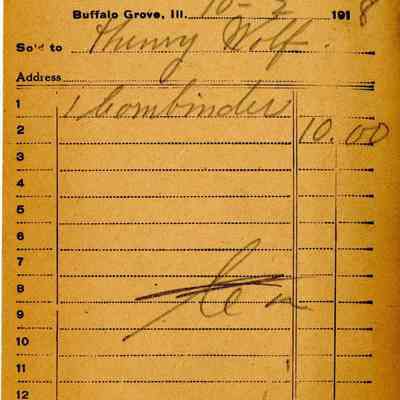 Buffalo Grove, Ill. 10-2 1918
Sold to Henry Wolf.
Address
1 1 Cornbinder
2 10.00
3
4
5
6
7
8
9
10
11
12